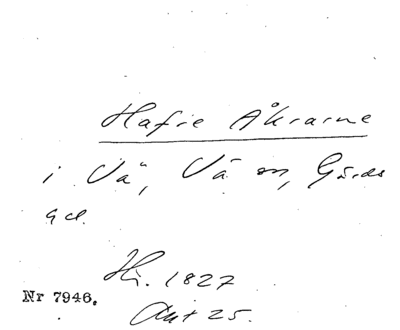 Hafre Åkrarne
i Vä, Vä sn, Gärds
hd.
Hi. 1827
Nr 7946.
Akt 25.